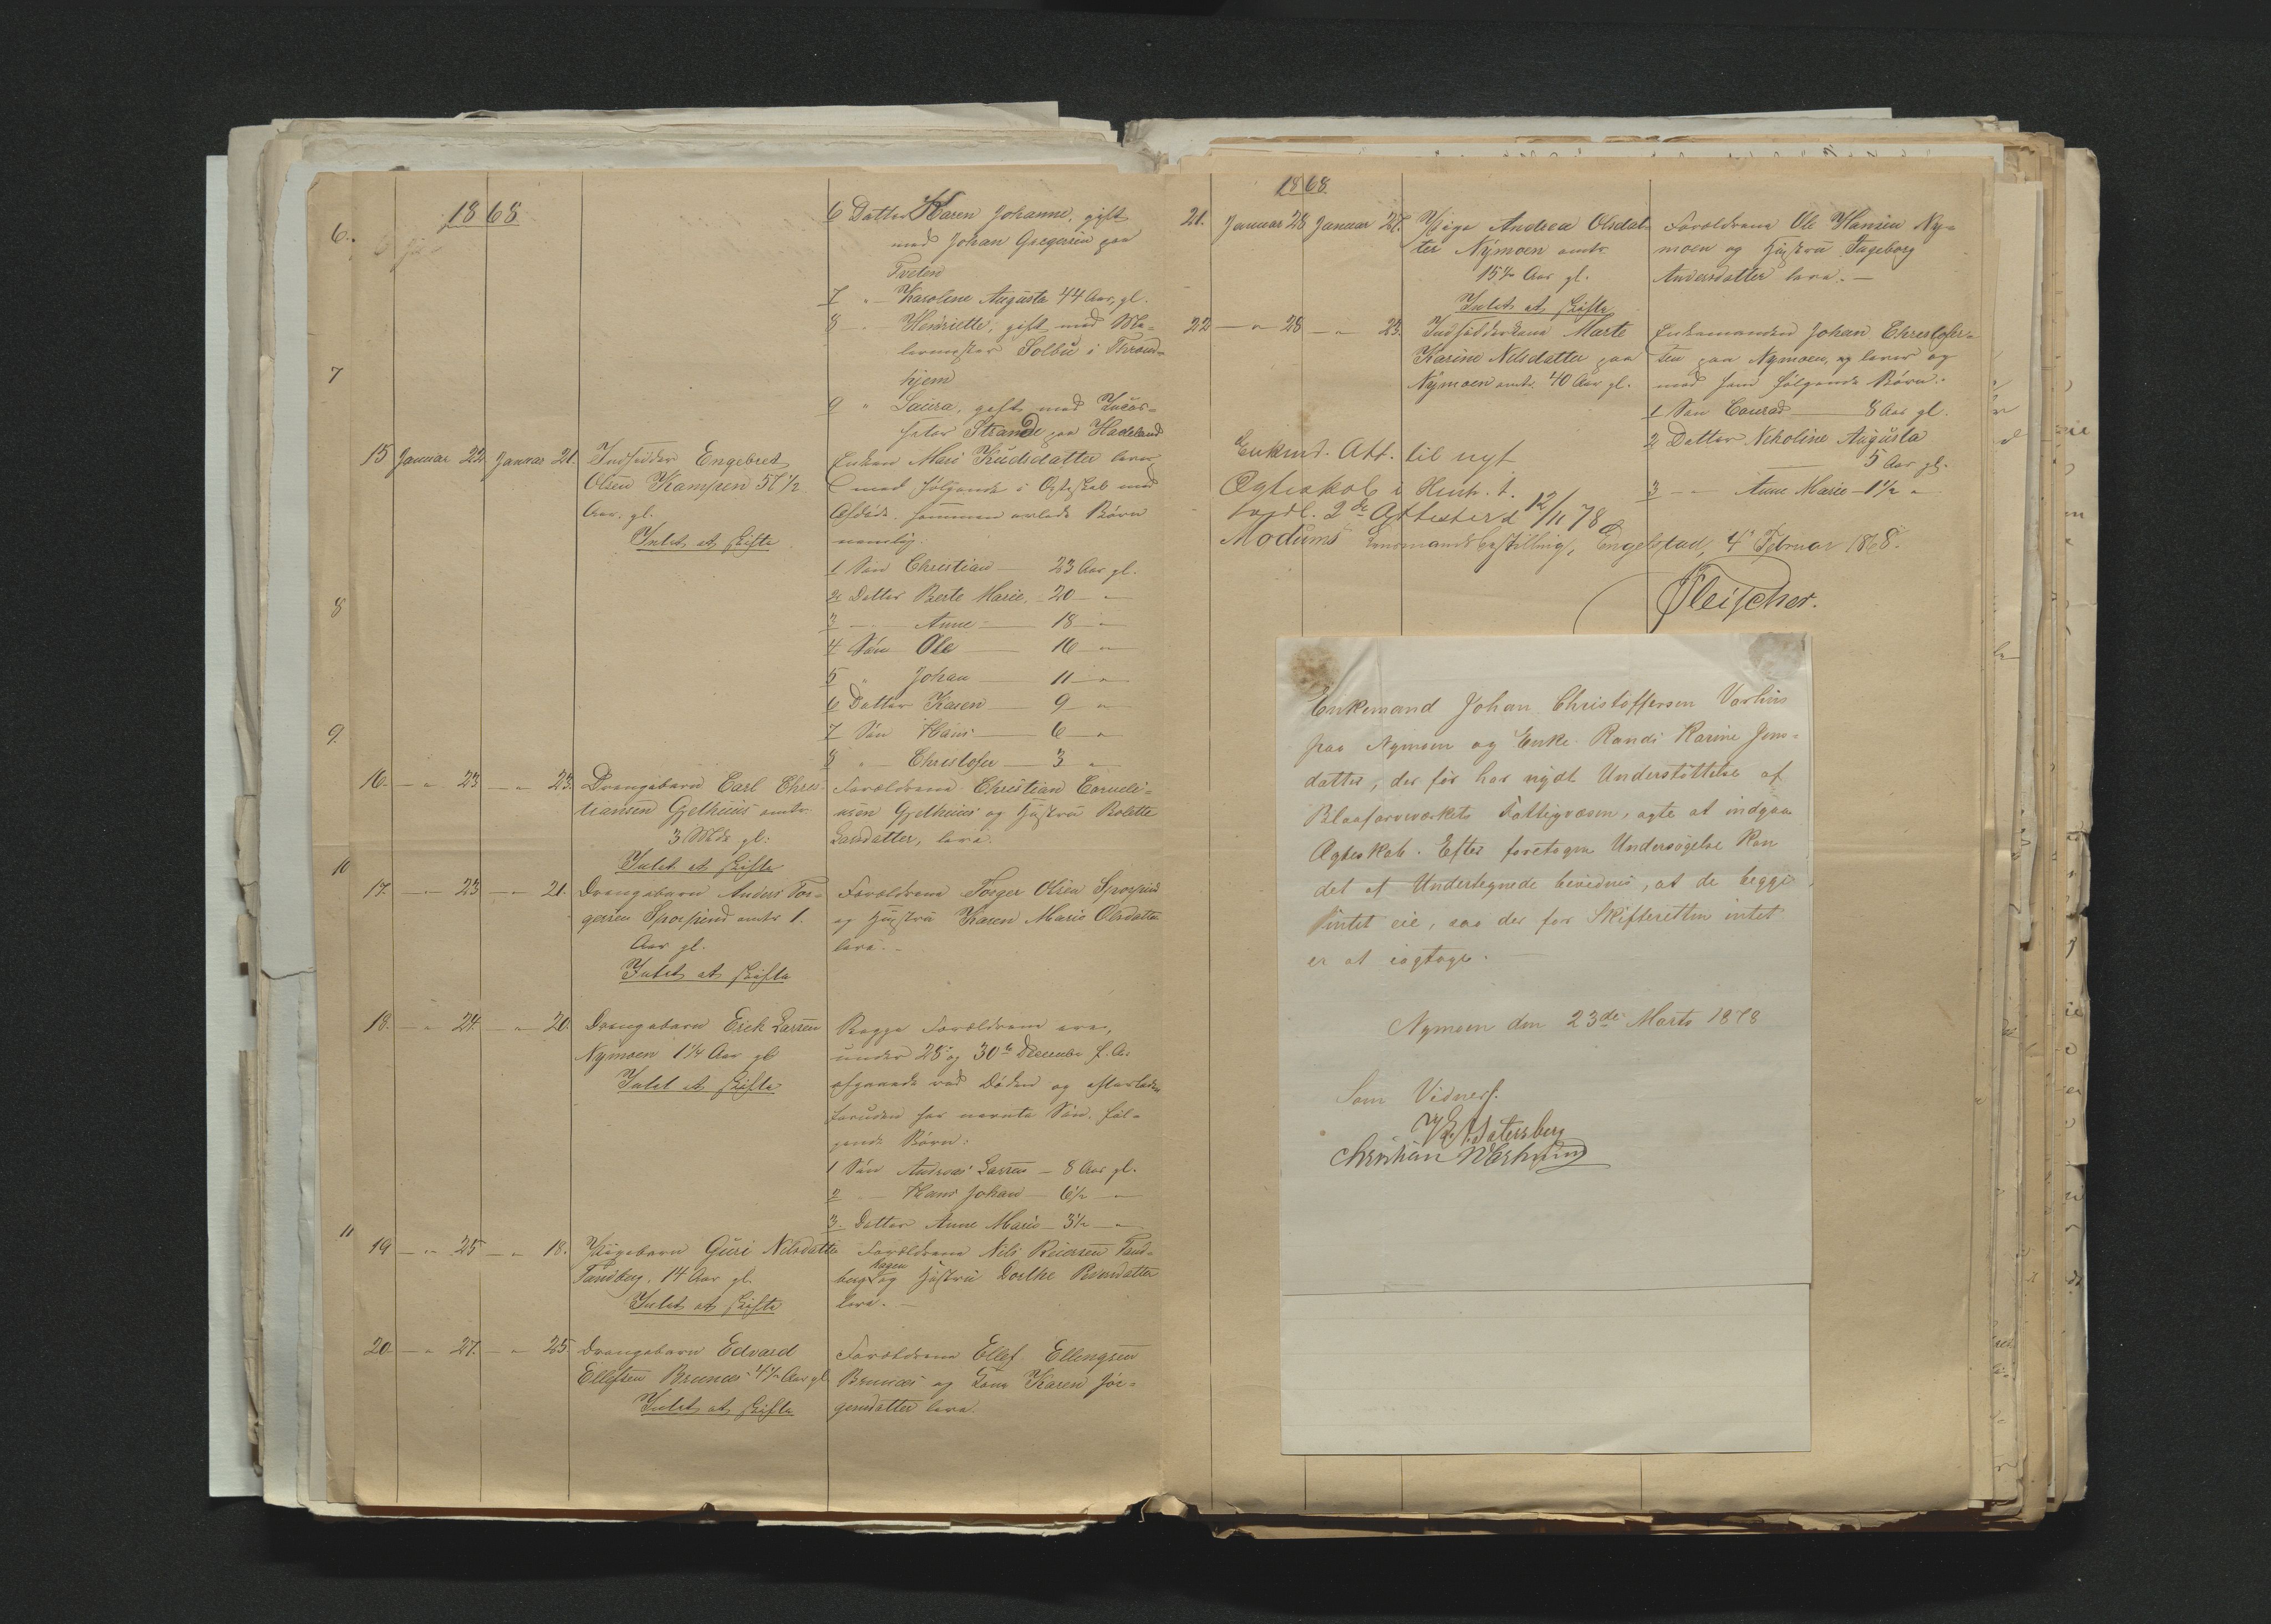 1868
6.
7
8
9
10
11
6 Datter Karen Johanne, gift
med Johan Gregersen paa
Tveten
7 " Karoline Augusta 44 Aar, gl.
8 " Henriette, gift med Ma-
lermester Solbü i Thrond-
hjem
9 " Laura, gift med
Strande paa Hadeland
15 Januar 22 Januar 21. Indsidder Engebret
Olsen Kampen 57 1/2
Aar. gl.
Intet at skifte
Enken Mari Knudsdatter lever
med følgende i Ægteskab med
Afdøde sammen avlede Børn
nemlig:
1 Søn Christian — 23 Aar gl.
2 Datter Berte Marie. 20 — "
3 — Anne — 18 — "
4 Søn Ole — 16 — "
5 " Johan — 11 — "
6 Datter Karen — 9 — "
7 Søn Hans — 6 — "
8 " Christofer — 3 "
16. — " 23 — " 23. Drengebarn Carl Chris-
tiansen Gjethuus omtr.
3 Mdr gl.
Intet at skifte
Forældrene Christian Corneli-
usen Gjethuus og Hustru Bolette
Larsdatter, leve.
17. — " 23 — " 21. Drengebarn Anders Tor-
gersen omtr 1.
Aar gl.
Intet at skifte
Forældrene Torger Olsen
og Hustru Karen Marie Olsdatter
leve. —
18. — " 24. — " 20. Drengebarn Erik Larsen
Nymoen 1 1/4 Aar gl
Intet at skifte
Begge Forældrene ere,
under 25de og 30te December f. A.
afgaaede ved Døden og efterlader
foruden her nævnte Søn, føl-
gende Børn:
1 Søn Andreas Larsen — 8 Aar gl.
2 — Hans Johan — 6 1/2 — "
3. Datter Anne Marie — 3 1/2 — "
19 — " 25 — " 18. Pigebarn Guri Nilsdatter
Tandberg. 14 Aar gl.
Intet at skifte
Forældrene Nils Tand-
berghagen og Hustru Dorthe
leve. —
20 — " 27. — " 25 Drengebarn Edvard
Ellefsen Bruunaas 4 1/2 Aar gl
Intet at skifte
Forældrene Ellef Ellingsen
Bruunaas og Kone Karen Jør-
gensdatter leve.
1868.
21. Januar 28 Januar 27. Pige Andrea Olsdat-
ter Nymoen omtr.
15 1/2 Aar gl.
Intet at skifte
Forældrene Ole Hansen Ny-
moen og Hustru Ingeborg
Andersdatter leve. —
22 — " 28 — " 23. Indsidderkone Marte
Karine Nilsdatter paa
Nymoen omtr. 40 Aar gl.
Enkemanden Johan Christofer-
sen paa Nymoen, lever og
med ham følgende Børn:
1 Søn Conrad — 8 Aar gl.
2 Datter Nikoline Augusta
5 Aar gl.
3 — " Anne Marie — 1 1/2 "
Enkmd. Att. til nyt
Ægteskab i Henh. t.
vedl. 2de Attester d 12/11 78
Modums Lensmandsbestilling, Engelstad, 4de Februar 1868.
Fleischer.
Enkemand Johan Christoffersen Varhus
paa Nymoen og Enke Randi Karine Jens-
datter, der før har nydt Understøttelse af
Blaafarveværkets Fattigvæsen, agte at indgaa
Ægteskab. Efter foretagen Undersøgelse kan
det af Undertegnede bevidnes, at de begge
Intet eie, saa der for Skifteretten intet
er at iagtage. —
Nymoen den 23de Marts 1878
Som Vidner:
Christian